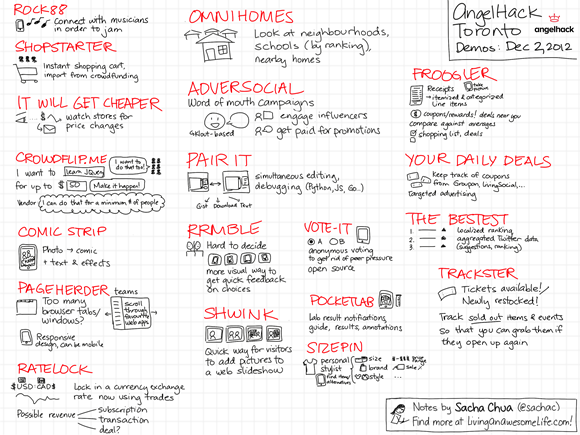 ROCK88
Connect with musicians
in order to jam
SHOPSTARTER
Instant shopping cart,
import from crowdfunding
IT WILL GET CHEAPER
watch stores for
price changes
CROWDFLIP.ME
I want to
do that too!
I want to learn JQuery
for up to $ 50 Make it happen!
Vendor I can do that for a minimum # of people
COMIC STRIP
Photo → comic
+ text & effects
PAGEHERDER teams
Too many
browser tabs/
windows?
Scroll
through
favourite
web apps
Responsive
design, can be mobile
RATELOCK
$USD-CAD$
Lock in a currency exchange
rate now using trades
Possible revenue
subscription
transaction
deal?
OMNIHOMES
Look at neighbourhoods,
schools (by ranking),
nearby homes
ADVERSOCIAL
Word of mouth campaigns
engage influencers
get paid for promotions
Klout-based
PAIR IT
simultaneous editing,
debugging (Python, JS, Go..)
Gist Download Text
RRMBLE
Hard to decide
more visual way to
get quick feedback
on choices
VOTE-IT
A B
anonymous voting
to get rid of peer pressure
open source
SHWINK
Quick way for visitors
to add pictures to
a web slideshow
POCKETLAB
Lab result notifications,
guide, results, annotations
SIZEPIN
personal
stylist
find items/
alternatives
size
brand
style
Sale
AngelHack
Toronto
angelhack
Demos: Dec 2, 2012
FROOGLER
Receipts
→ itemized & categorized
line items
coupons/rewards/deals near you
compare against averages
shopping list, deals
YOUR DAILY DEALS
Keep track of coupons
from Groupon, LivingSocial,...
Targeted advertising
THE BESTEST
1. localized ranking
2. aggregated Twitter data
3. (suggestions, ranking)
TRACKSTER
Tickets available!
Newly restocked!
Track sold out items & events
so that you can grab them if
they open up again
Notes by Sacha Chua (@sachac)
Find more at LivingAnAwesomeLife.com!